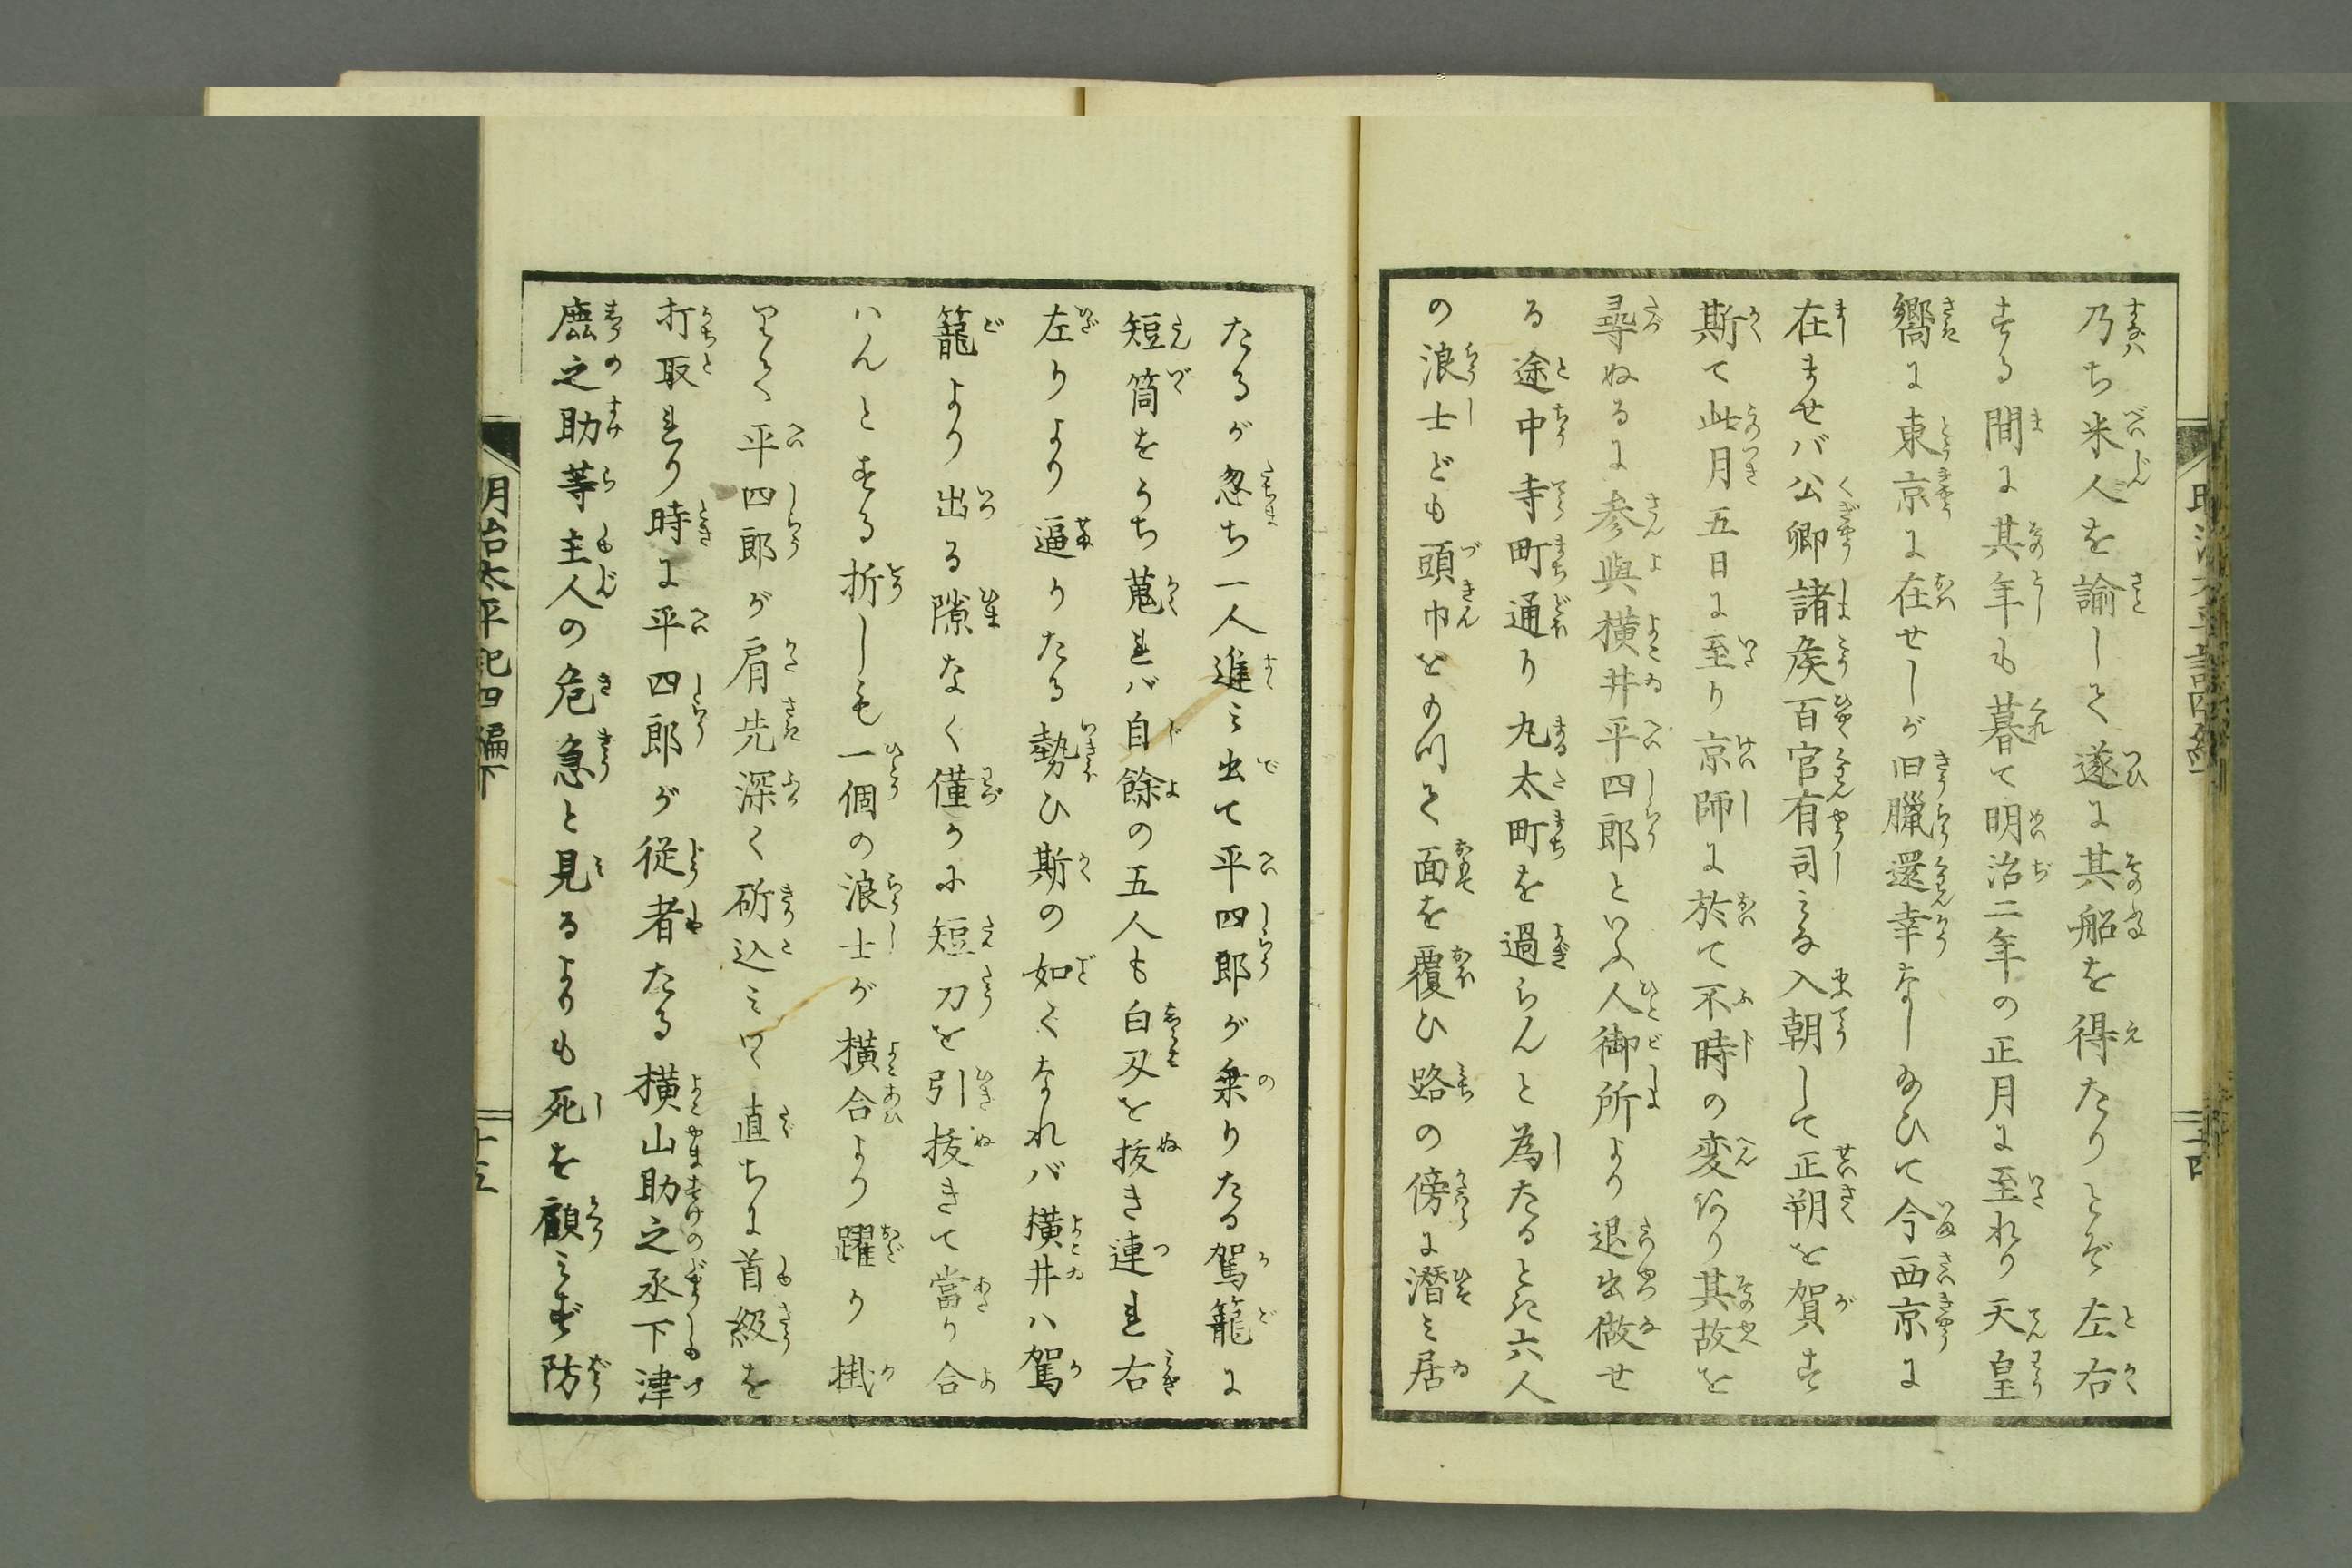 乃ち米人を諭して遂に其船を得たりとぞ左右
する間に其年も暮て明治二年の正月に至れり天皇
嚮に東京に在せしが旧臘還幸なし給ひて今西京に
在ませバ公卿諸矦百官有司みな入朝して正朔を賀す
斯て此月五日に至り京師に於て不時の変あり其故を
尋ぬるに参與横井平四郎といふ人御所より退出做せ
る途中寺町通り丸太町を過らんと為たるとき六人
の浪士ども頭巾をもつて面を覆ひ路の傍に潜ミ居
たるが忽ち一人進ミ出て平四郎が乗りたる駕籠に
短筒をうち蒐れバ自餘の五人も白刄を抜き連れ右
左りより逼りたる勢ひ斯の如くなれバ横井ハ駕
籠より出る隙なく僅かに短刀を引抜きて當り合
ハんとする折しも一個の浪士が横合より躍り掛
りて平四郎が肩先深く斫込ミつゝ直ちに首級を
打取れり時に平四郎が従者たる横山助之丞下津
鹿之助等主人の危急と見るよりも死を顧ミず防
明治太平記四編下
十三